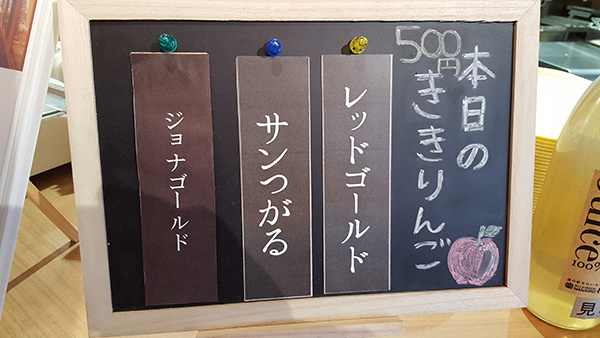 本日の
ききりんご
500円
レッドゴールド
サンつがる
ジョナゴールド
juice
100%
見